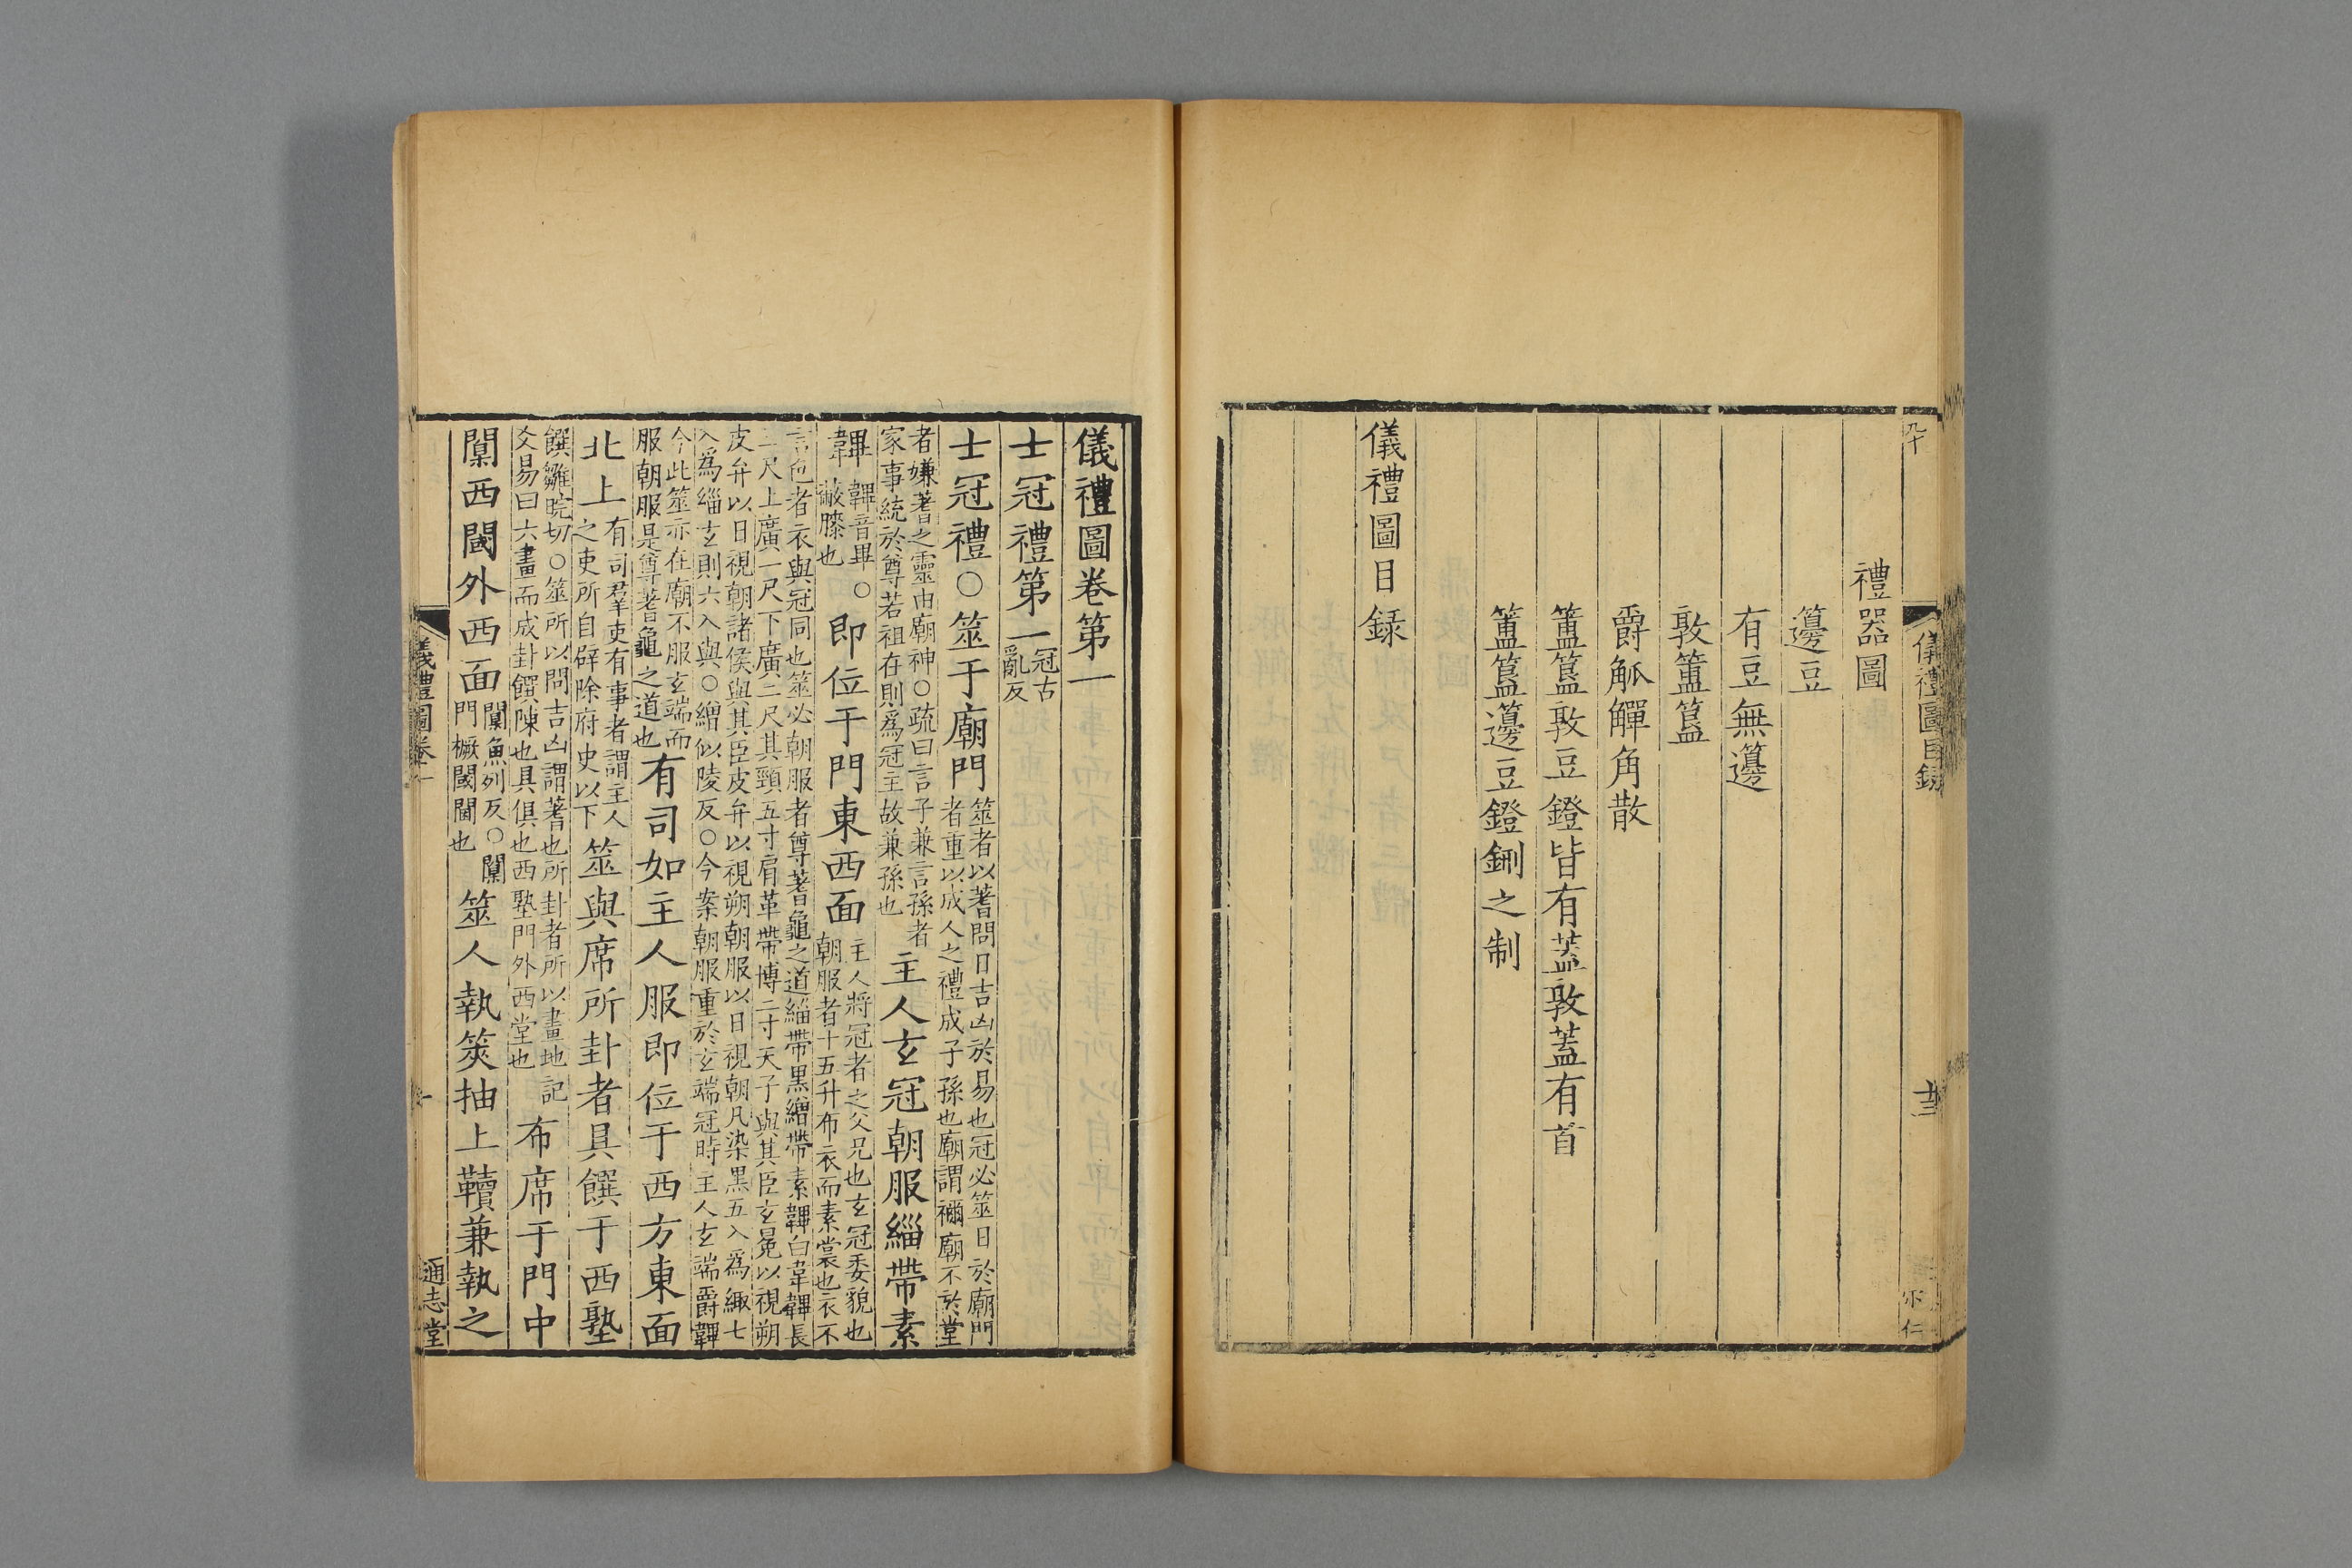 九十
儀禮圖目錄
十三
禮器圖
籩豆
有豆無籩
敦簠簋
爵觚觶角散
簠簋敦豆鐙皆有蓋敦蓋有首
簠簋籩豆鐙鉶之制
儀禮圖目録
儀禮圖卷第一
士冠禮第一冠古亂反
士冠禮○筮于廟門筮者以蓍問日吉凶於易也冠必筮日於廟門者重以成人之禮成子孫也廟謂禰廟不於堂
者嫌蓍之靈由廟神○疏曰言子兼言孫者家事統於尊若祖在則爲冠主故兼孫也主人玄冠朝服緇帶素
韠韠音畢○韠蔽膝也即位于門東西面主人將冠者之父兄也玄冠委貌也朝服者十五升布衣而素裳也衣不
言色者衣與冠同也筮必朝服者尊蓍龜之道緇帶黑繒帶素韠白韋韠長三尺上廣一尺下廣二尺其頸五寸肩革帶博二寸天子與其臣玄冕以視朔
皮弁以日視朝諸侯與其臣皮弁以視朔朝服以日視朝凡染黑五入爲緅七入爲緇玄則六入與○繒似陵反○今案朝服重於玄端冠時主人玄端爵韠
今此筮亦在廟不服玄端而服朝服是尊蓍龜之道也有司如主人服即位于西方東面
北上有司羣吏有事者謂主人之吏所自辟除府史以下筮與席所卦者具饌于西塾
饌雛晥切○筮所以問吉凶謂蓍也所卦者所以畫地記爻易曰六畫而成卦饌陳也具俱也西塾門外西堂也布席于門中
闑西閾外西面闑魚列反○闑門橛閾閫也筮人執筴抽上韇兼執之
儀禮圖卷一
一
通志堂